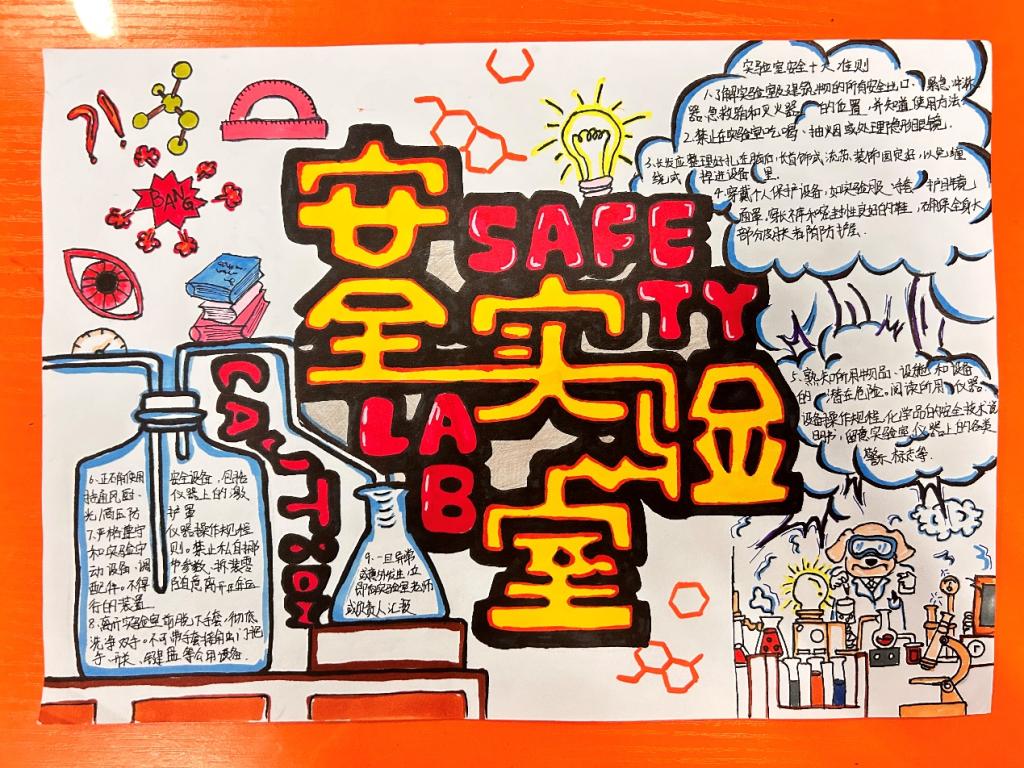 ?!
BANG
安全实验室
SAFETY
LAB
CAUTION
实验室安全十大准则
1.了解实验室及建筑物的所有安全出口、紧急冲淋
器急救箱和灭火器 的位置,并知道使用方法
2.禁止在实验室吃、喝、抽烟或处理隐形眼镜.
3.长发应整理好扎在脑后,长首饰或流苏装饰固定好,以免缠
绕式 掉进设备里.
4.穿戴个人保护设备,如实验服、 护目镜
面罩,穿长裤和密封性良好的鞋,确保全身大
部分皮肤有防护层.
5.熟知所用物品、设施和设备
的 潜在危险。阅读所用 仪器
设备操作规程,化学品的安全技术说
明书,留意实验室仪器上的各类
警示标志等.
6.正确使用 安全设备,包括
仪器上的激
光/高压防 护罩
7.严格遵守 仪器操作规程
和实验守 则。禁止私自挪
动设备、调 节参数、拆装零
配件。不得 随意离开正在运
行的装置
8.离开实验室前脱下手套,彻底
洗净双手。不可带手套接触门把
手、开关、键盘等公用设备.
9.一旦异常
或意外发生,立
即向实验室老师
或负责人汇报